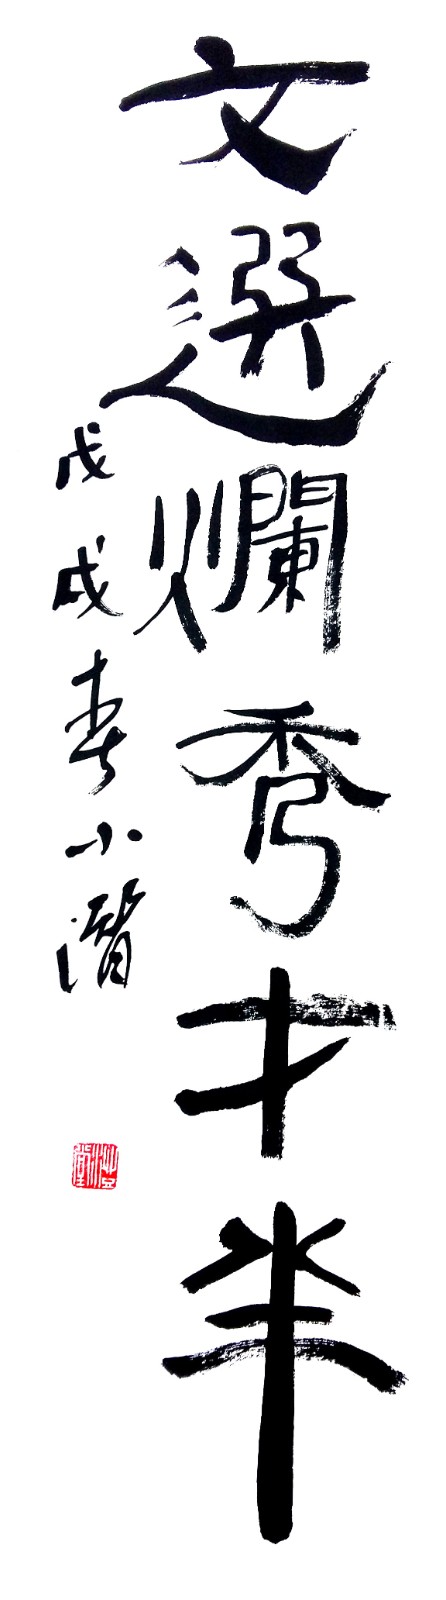 文選爛秀才半
戊戌春小潛